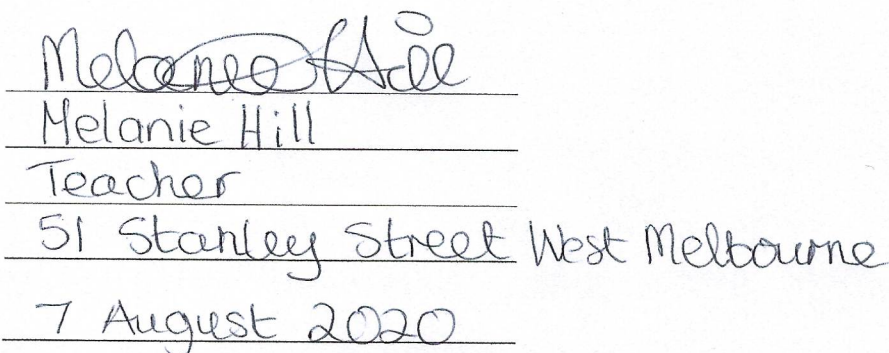 Melanie Hill
Melanie Hill
Teacher
51 Stanley Street West Melbourne
7 August 2020